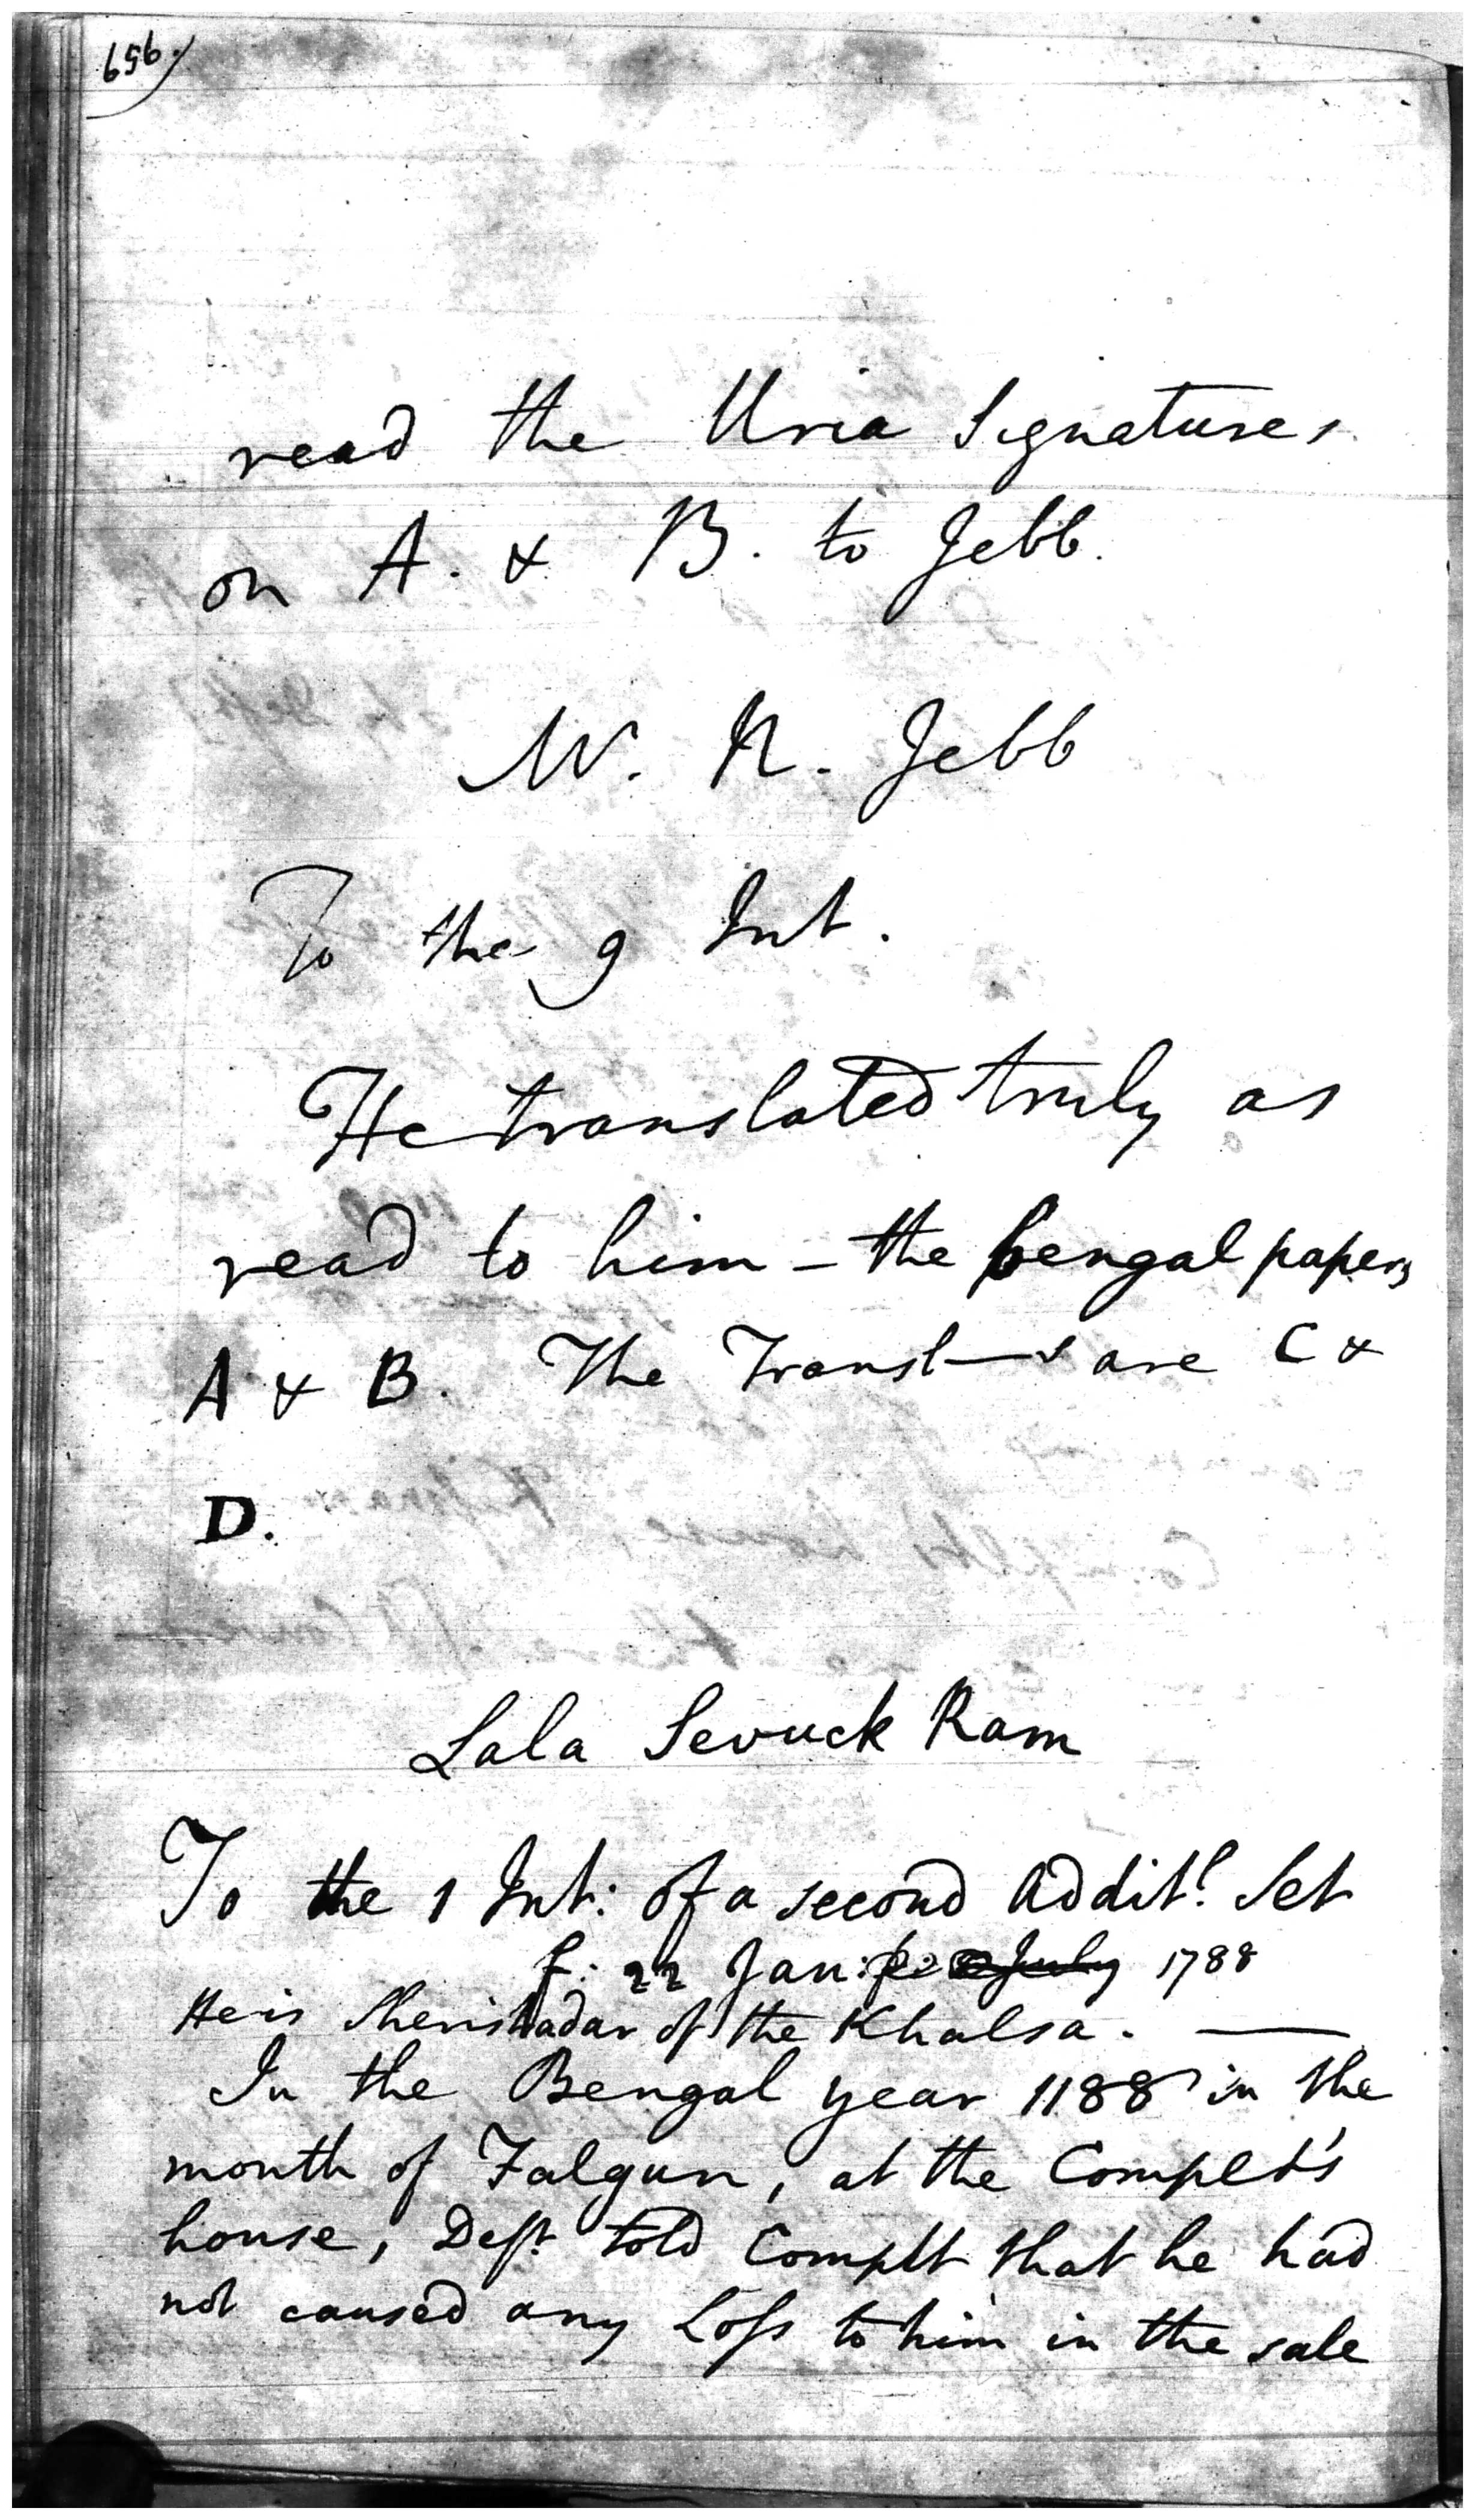 959.
read the Uria Signatures
on A. & B. to Jebb.
W. R. Jebb
To the 9 Int.
He translated truly as
read to him – the bengal papers
A & B. The Transl—s are C &
D.
Lala Sevuck Ram
To the 1 Int: of a second Addit.l Set
f: 22 Jan: July 1788
He is Sherishadar of the Khalsa. —
In the Bengal year 1188 in the
month of Falgun, at the Complt's
house, Deft. told Complt that he had
not caused any Loss to him in the sale